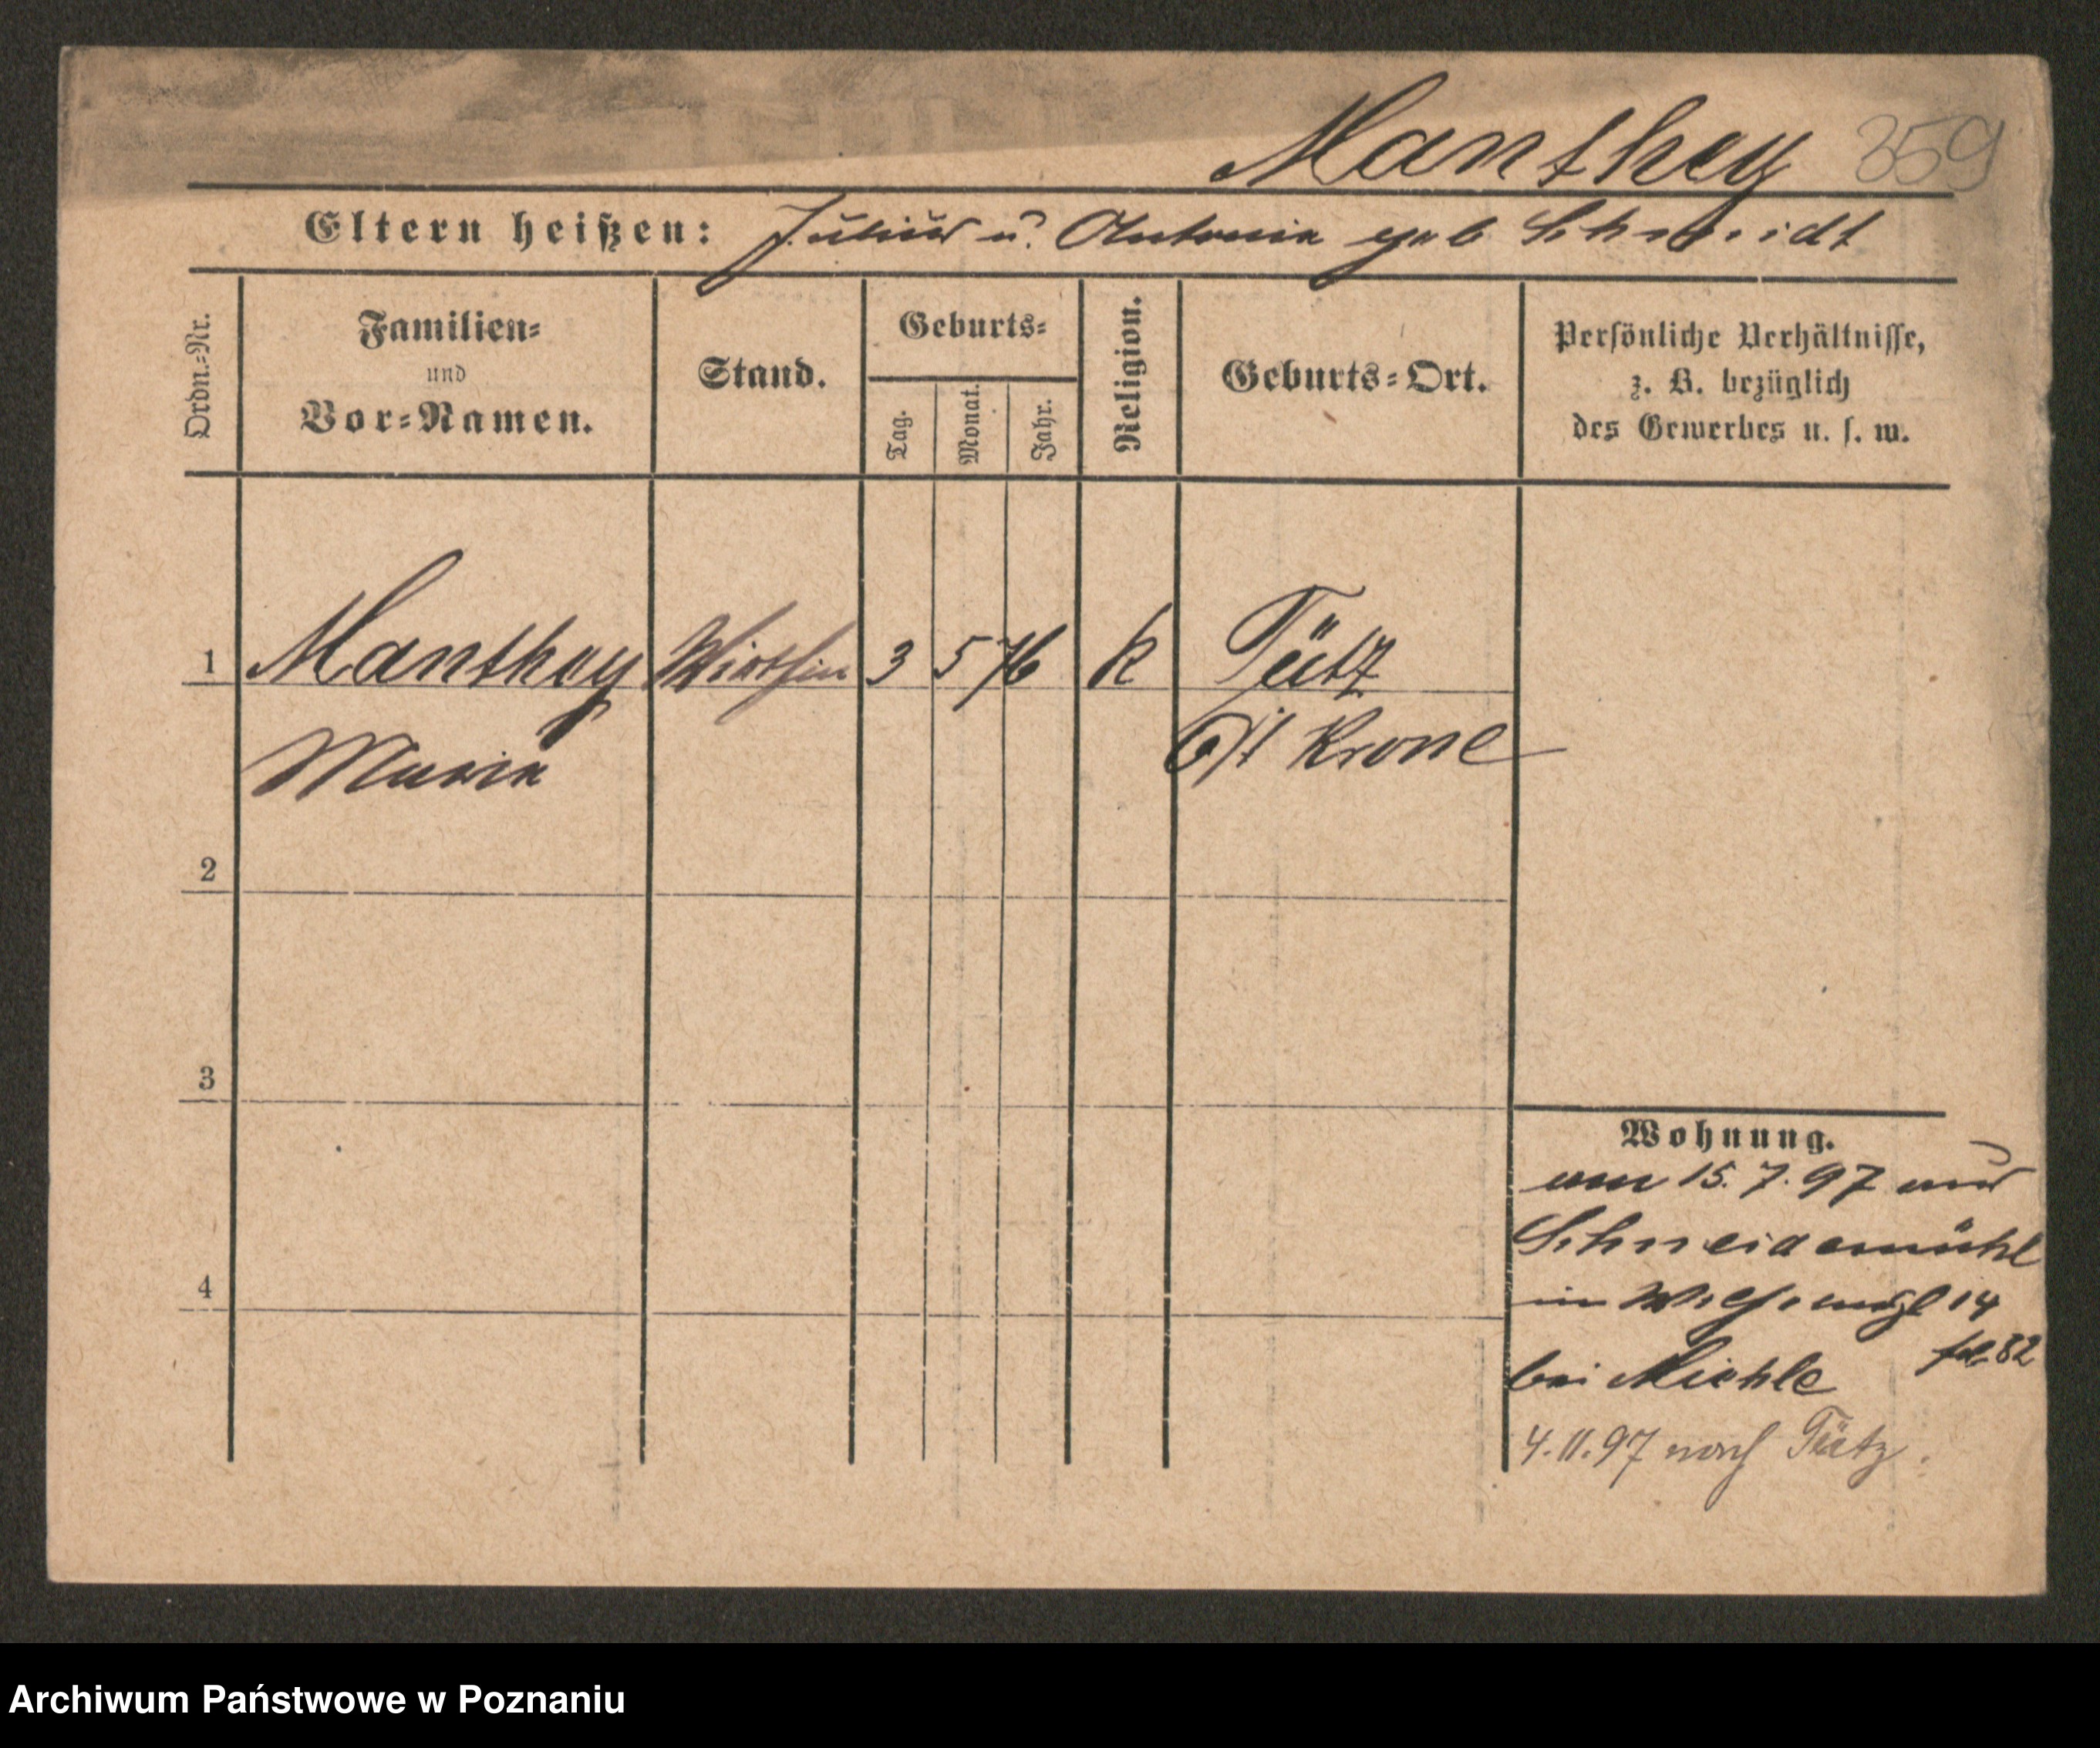 Manthey 359
Eltern heißen: Julius u. Antonie geb Schmidt
Ordn.-Nr.
Familien-
und
Vor-Namen.
Stand.
Geburts-
Tag.
Monat.
Jahr.
Religion.
Geburts-Ort.
Persönliche Verhältnisse,
z. B. bezüglich
des Gewerbes u. s. w.
1 Manthey Wirthin 3 5 76 k Tütz
Maria Krone
2
3
4
Wohnung.
am 15.7.97 aus
Schneidemühl
in 14
fol. 82
bei Michle
4.11.97 nach Tütz.
Archiwum Państwowe w Poznaniu